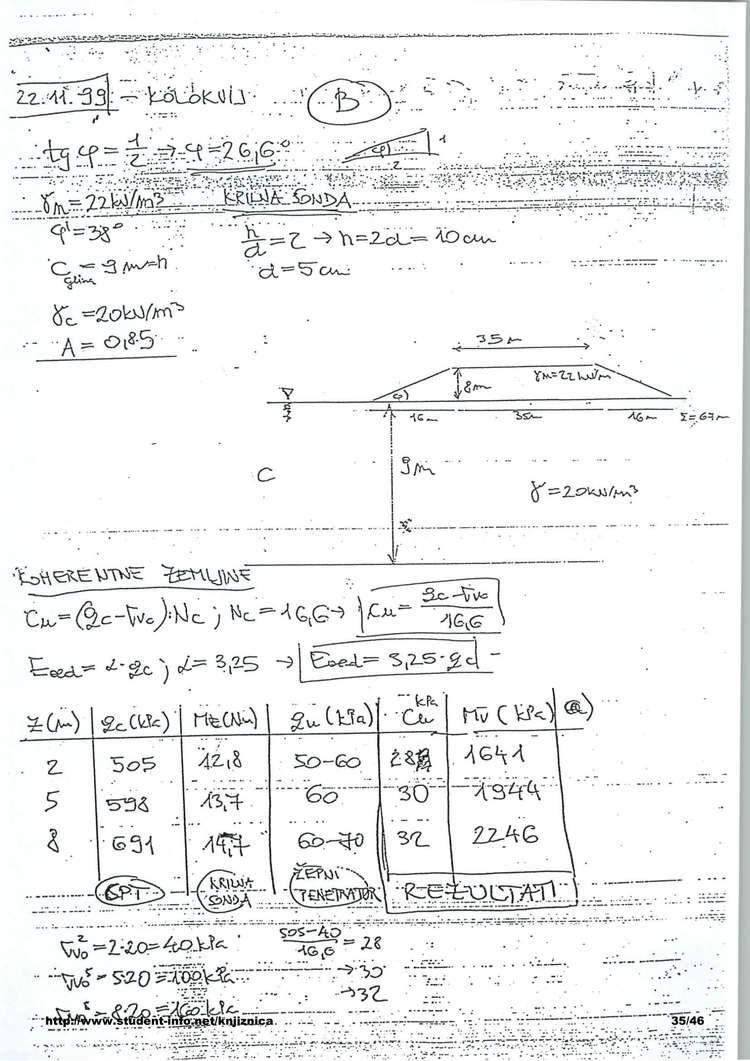 22.11.99. – KOLOKVIJ B
tg φ = 1/2 → φ = 26,6° φ 1 2
γm = 22 kN/m3 KRILNA SONDA
φ' = 38° h/d = 2 → h = 2d = 10 cm
C glina = 9 m = h d = 5 cm
γc = 20 kN/m3
A = 0,85
35 m
φ 8m γm = 22 kN/m
16 m 35 m 16 m Σ = 67 m
C 9 m
γ = 20 kN/m3
KOHERENTNE ZEMLJINE
Cu = (qc - σvo) : Nc ; Nc = 16,6 → Cu = (qc - σvo)/16,6
Eoed = α · qc ; α = 3,25 → Eoed = 3,25 · qc
z (m) qc (kPa) Mt (Nm) qu (kPa) Cu kPa Mv (kPa) a)
2 505 12,8 50-60 28 1641
5 598 13,7 60 30 1944
8 691 14,7 60-70 32 2246
KRILNA SONDA ŽEPNI PENETRATOR REZULTATI
σvo² = 2·20 = 40 kPa (505-40)/16,6 = 28
σvo⁵ = 5·20 = 100 kPa → 30
→ 32
= 8·20 = 160 kPa
http://www.student-info.net/knjiznica 35/46